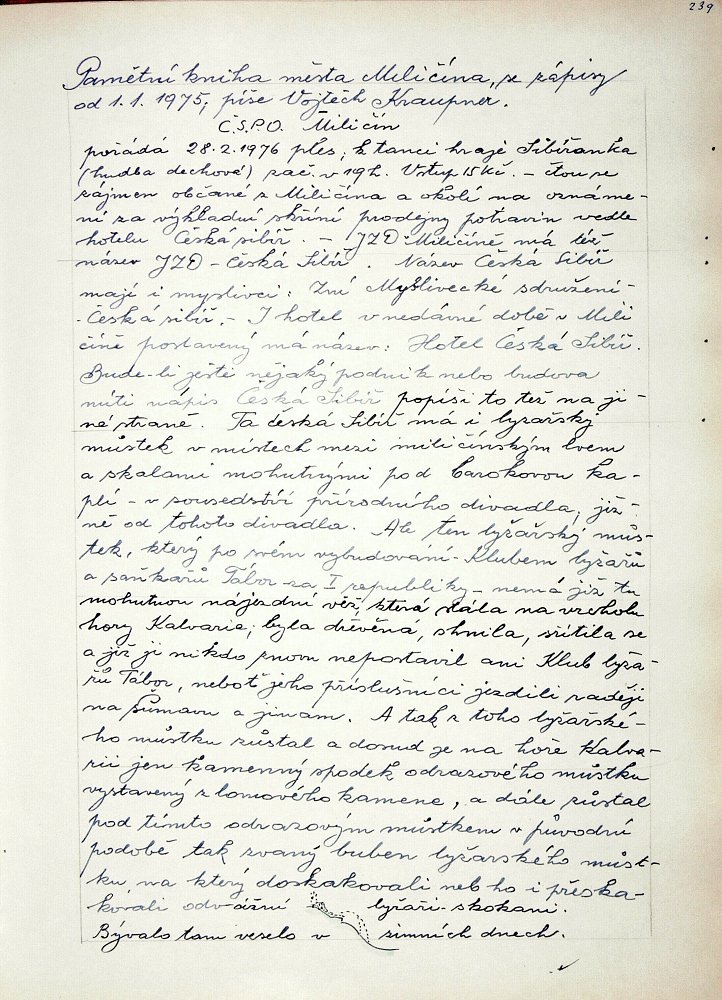 239
Pamětní kniha města Miličína, se zápisy
od 1.1. 1975, píše Vojtěch Kraupner.
Č.S.P.O. Miličín
pořádá 28.2.1976 ples, k tanci hraje Sibiřanka
(hudba dechová) zač. v 19h. Vstup 15 Kč. – čtou se
zájmem občané z Miličína a okolí na oznáme-
ní za výkladní skříní prodejny potravin vedle
hotelu Česká sibiř. – JZD Miličíně má též
název JZD – Česká Sibiř. Název Česká Sibiř
mají i myslivci: Zní Myslivecké sdružení-
-Česká sibiř. – I hotel v nedávné době v Mili
číně postavený má název: Hotel Česká Sibiř.
Bude-li ještě nějaký podnik nebo budova
míti nápis Česká Sibiř popíši to též na ji-
né straně. Ta česká Sibiř má i lyžařský
můstek v místech mezi miličínským lvem
a skalami mohutnými pod barokovou ka-
plí – v sousedství přírodního divadla, již-
ně od tohoto divadla. Ale ten lyžařský můs-
tek, který po svém vybudování – Klubem lyžařů
a saňkařů Tábor – za I republiky – nemá již tu
mohutnou nájezdní věž, která stála na vrcholu
hory Kalvarie, byla dřevěná, shnila, srítila se
a již ji nikdo znovu nepostavil ani Klub lyža-
řů Tábor, neboť jeho příslušníci jezdili raději
na Šumavu a jinam. A tak z toho lyžařské-
ho můstku zůstal a dosud je na hoře Kalva-
rii jen kamenný spodek odrazového můstku
vystavený z lomového kamene, a dále zůstal
pod tímto odrazovým můstkem v původní
podobě tak zvaný buben lyžarského můst-
ku, na který doskakovali neb ho i přeska-
kovali odvážní lyžaři-skokani.
Bývalo tam veselo v zimních dnech.